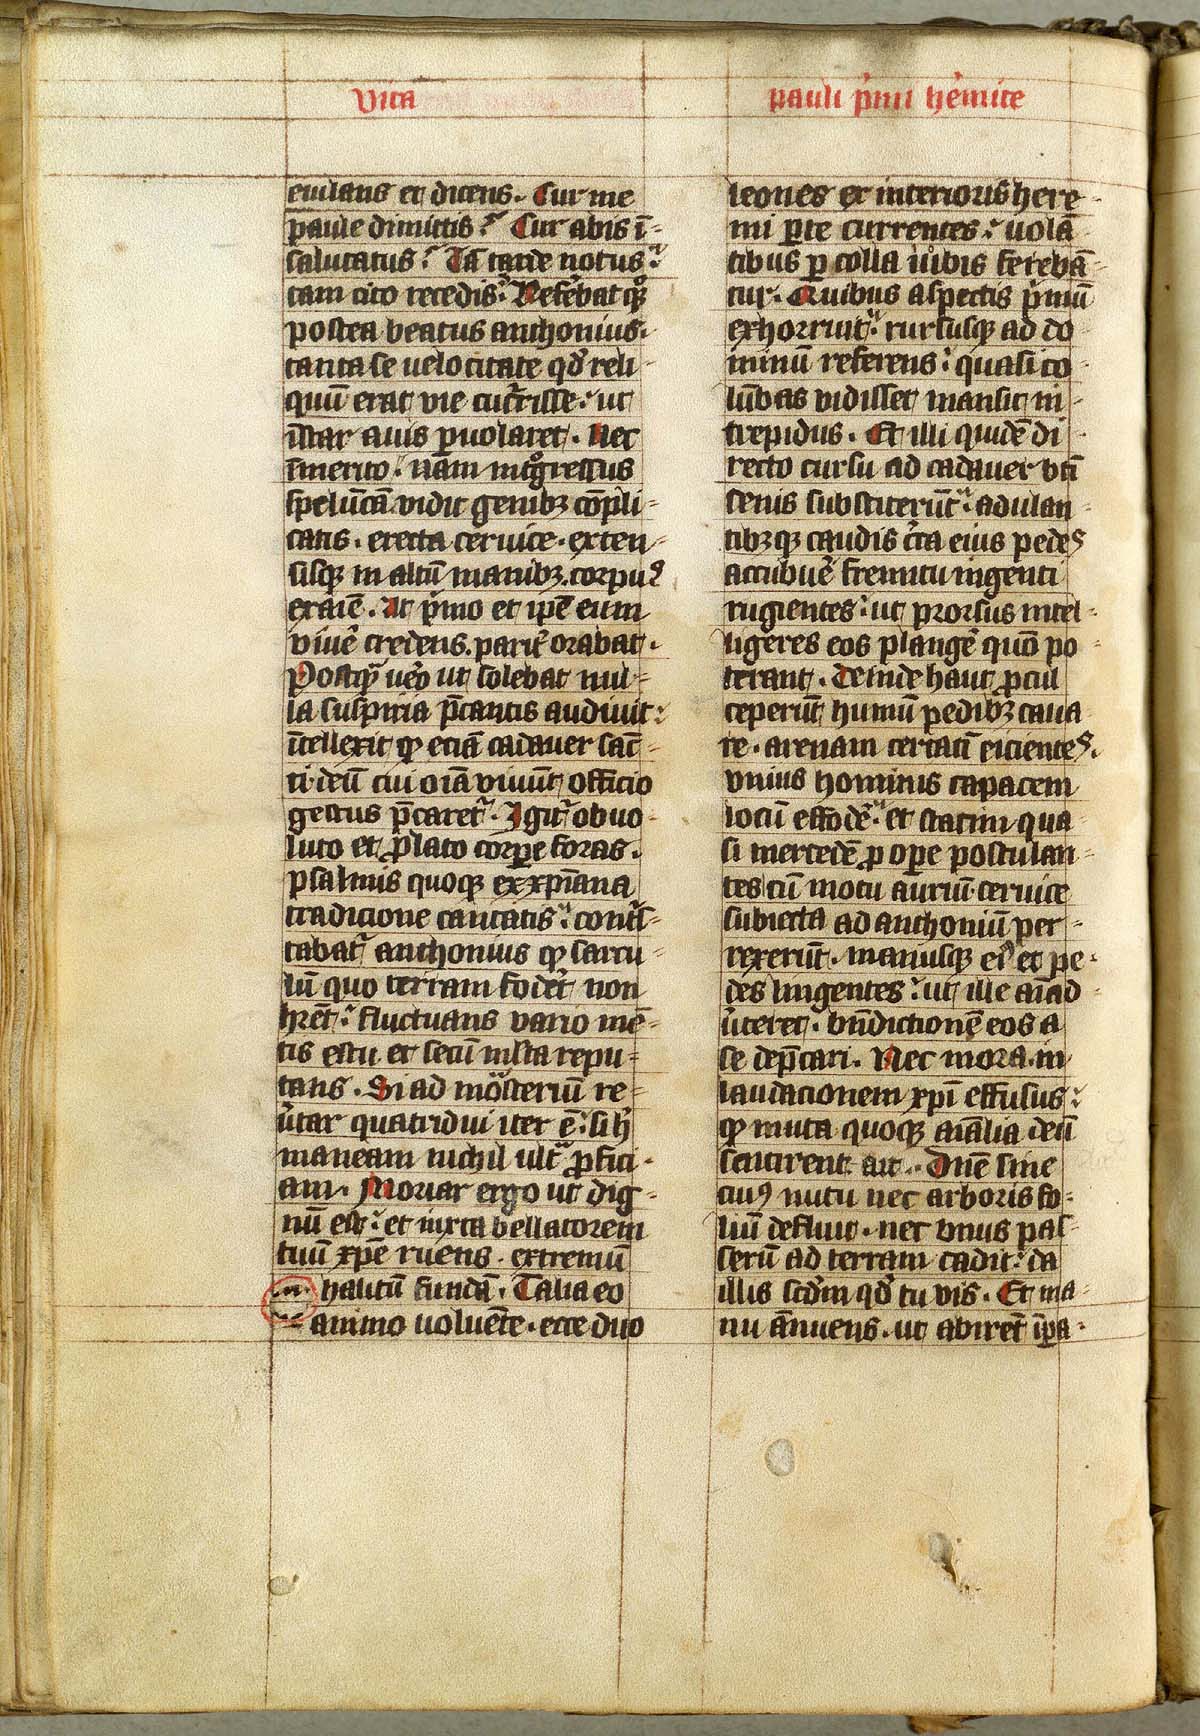 Vita
pauli p̓mi he̓mite
eiulans et dicens. Cur me
paule dimittis? Cur abis ī-
salutatus? Tā tarde notus?
tam cito recedis? Refe̓bat qͦꝫ
postea beatus anthonius.
tanta se velocitate qd̓ reli-
quū erat vie cucr̓risse: ut
īstar auis ꝑuolaret. Nec
īmerito. nam intͦgressus
speluncā vidit genibꝫ cōpli-
catis. erecta ceruice. exten-
sisqꝫ in altū manibꝫ. corpuꝰ
exaīe. At p̓mo et ip̄e eum
viue̓ credens. parit̓ orabat.
Postqꝫ ue̓o ut solebat nul-
la suspiria p̄cantis audiuit:
ītellexit ꝙ etiā cadauer san̄-
ti. deū cui oīa viuūt officio
gestus p̄caret᷑. Igit᷑ obuo-
luto et ꝓlato corꝑe foras.
psalmis quoqꝫ ex xp̄iana
tradicione cantatis: cont᷑s-
tabat᷑ anthonius ꝙ sarcu-
lū quo terram fodet̓ non
hr̄et: fluctuans vario mē-
tis estu. et secū m̄lta repu-
tans. Si ad moͣsteriū re-
u̓tar quatridui iter ē: si h̓
maneam nichil ult᷑ ꝓfici-
am. Moriar ergo ut dig-
nū est: et iuxta bellatorem
tuū xp̄e ruens. extremū
halitū fundā. Talia eo
animo voluēte. ecce duo
leones ex interioris here-
mi ꝑte currentes: uolā-
tibus ꝑ colla iu̓bis ferebā-
tur. Quibus aspectis p̓mū
exhorruit: rursusqꝫ ad do-
minū referens: quasi co-
lūbas vidisset mansit in-
trepidus. Et illi quidē di-
recto cursu ad cadauer bt̄i
senis substiterūt: adulan-
tibꝫqꝫ caudis c̓ca eius pedes
accubue̓ fremitu ingenti
rugientes: ut prorsus intel-
ligeres eos plange̓ quō po-
terant. Deinde haut ꝓcul
ceperūt humū pedibꝫ caua-
re. arenam certatī eicientes.
vnius hominis capacem
locū effode̓: et statim qua-
si mercedē ꝓ oꝑe postulan-
tes cū motu auriū. ceruice
subiecta ad anthoniū per-
rexerūt. manusqꝫ eiꝰ et pe-
des lingentes: ut ille aīad-
u̓teret. bn̄dictionē eos a
se dep̄cari. Nec mora. in
laudacionem xp̄i effusus:
ꝙ muta quoqꝫ aīalia deū
sentirent. ait. Dn̄e sine
cuiꝰ nutu nec arboris fo-
liū defluit. nec vnius pas-
serū ad terram cadit: da
illis scd̄m qd̓ tu vis. Et ma-
nu ānuens. ut abirēt īꝑa-